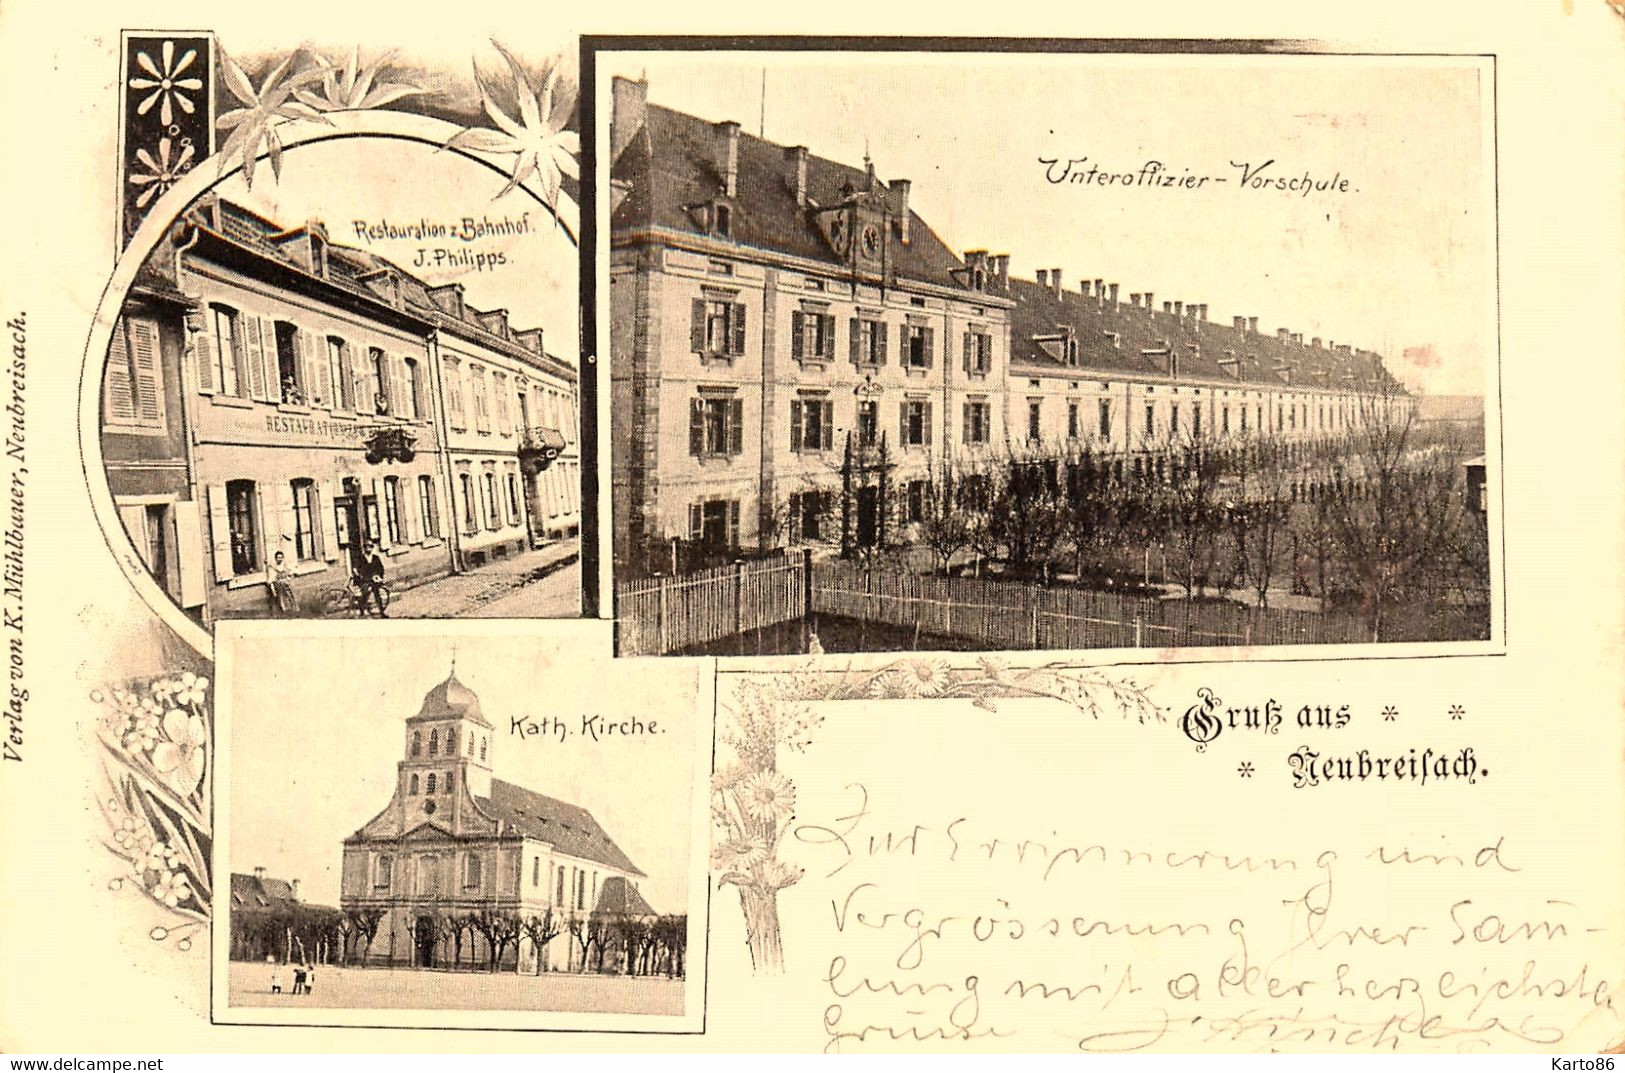 Verlag von K. Mühlbauer, Neubreisach.
Restauration z Bahnhof.
J. Philipps.
RESTAURATION
Unteroffizier-Vorschule.
Kath. Kirche.
Gruß aus * *
* Neubreisach.
Zur Errinnerung und
Vergrösserung Ihrer Sam-
lung mit aller herzlichste
Grüsse
www.delcampe.net
Karto86